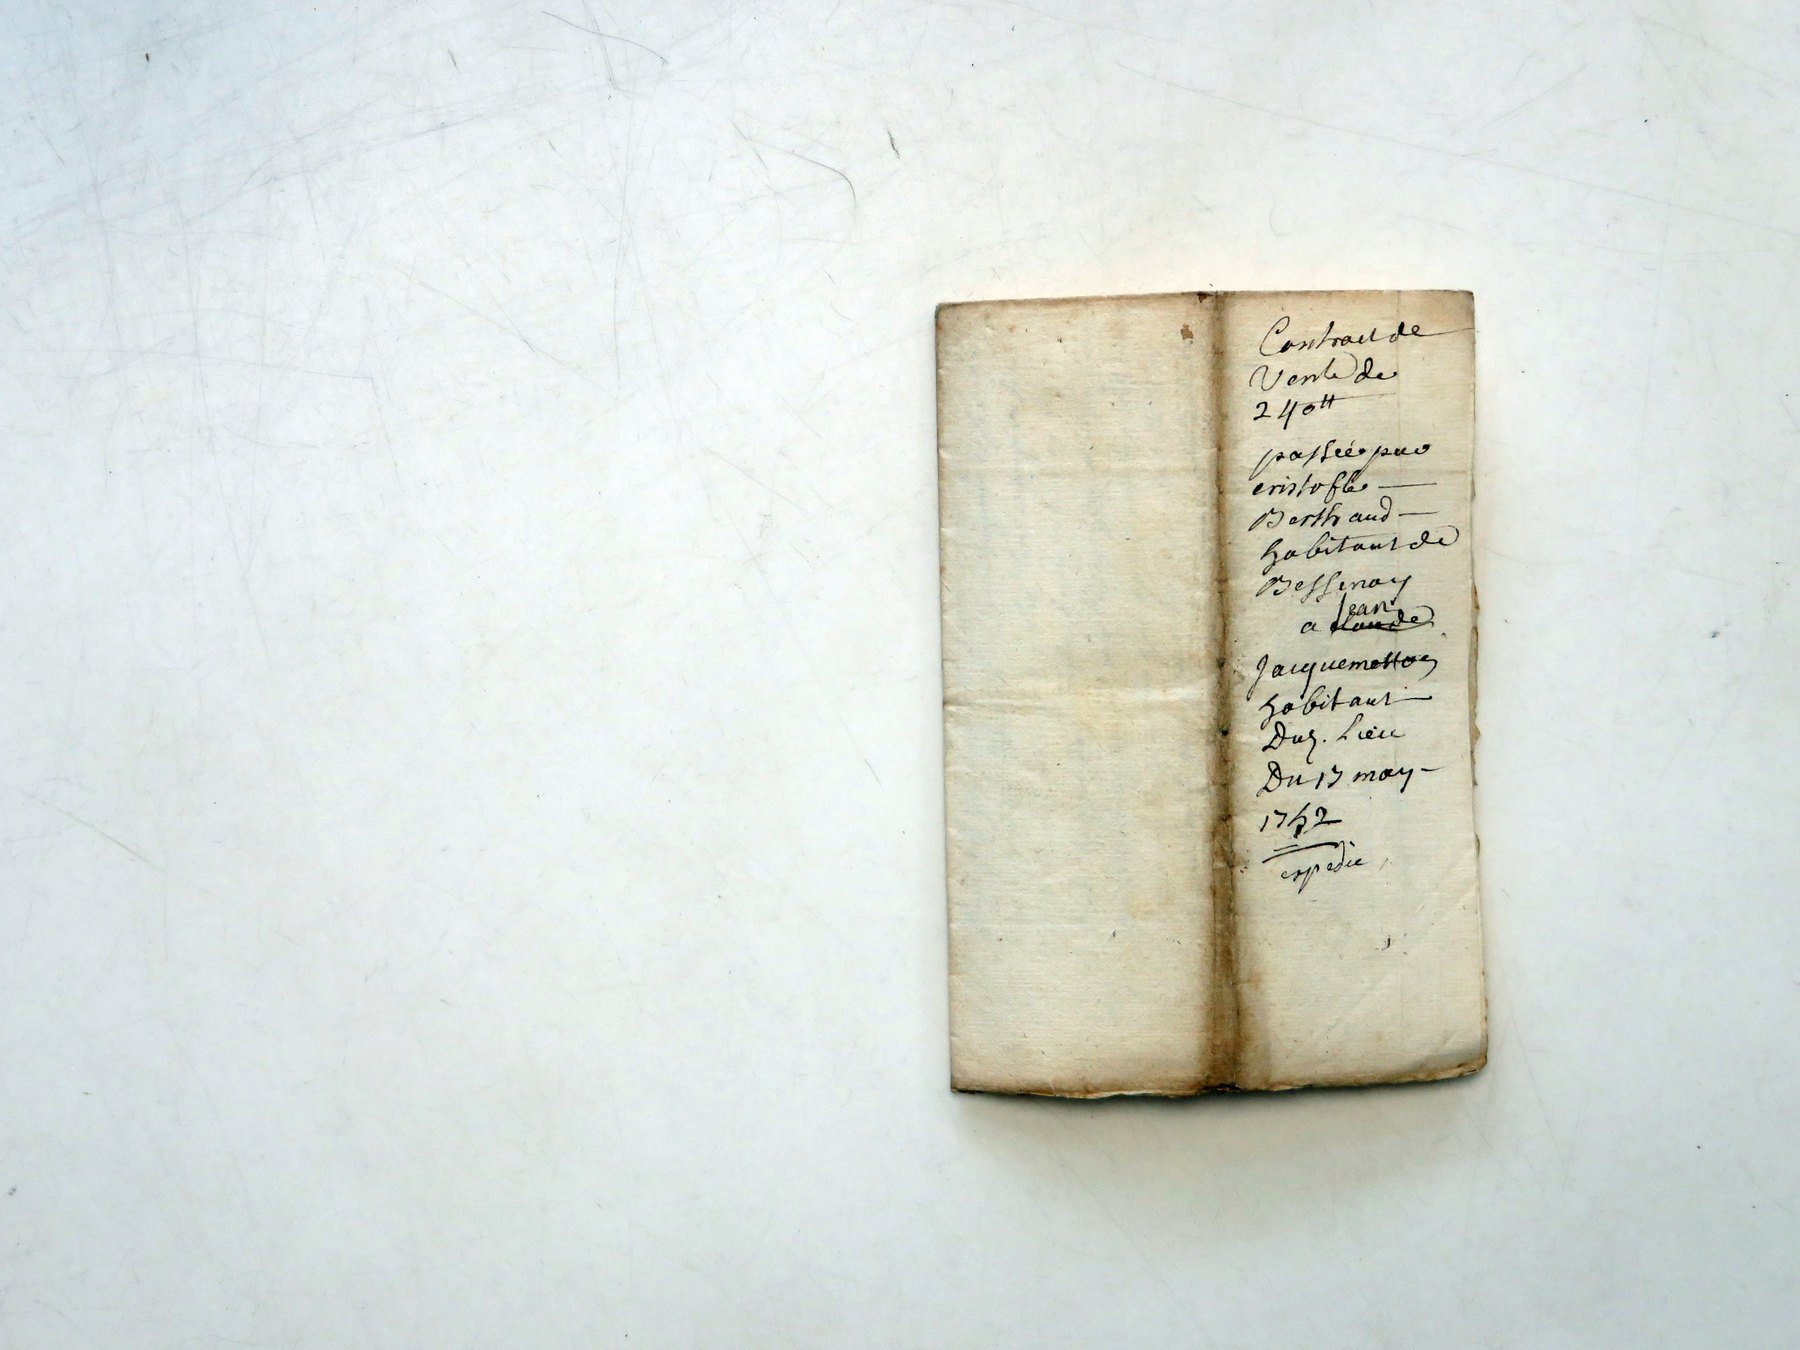 Contract de
Vente de
240tt
passée par
cristofle —
Berthaud —
habitant de
Bessenay
Jean
a claude
Jacquemetton
habitant —
Dud. Lieu
Du 17 may —
expedie